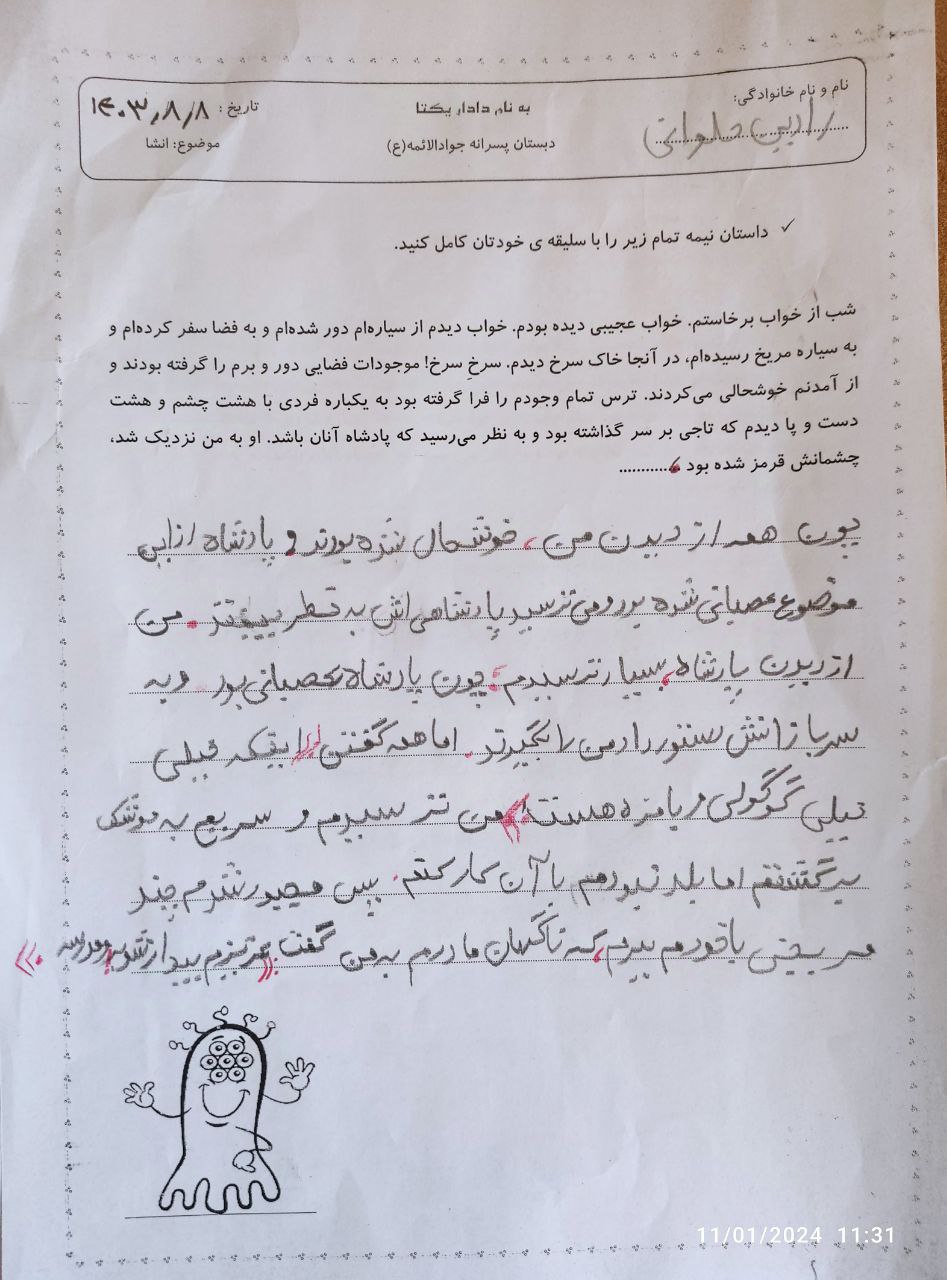 نام و نام خانوادگی:
به نام دادار یکتا
تاریخ : ۱۴۰۳/۸/۸
دبستان پسرانه جوادالائمه(ع)
موضوع: انشا
✓ داستان نیمه تمام زیر را با سلیقه ی خودتان کامل کنید.
شب از خواب برخاستم. خواب عجیبی دیده بودم. خواب دیدم از سیاره‌ام دور شده‌ام و به فضا سفر کرده‌ام و
به سیاره مریخ رسیده‌ام، در آنجا خاک سرخ دیدم. سرخِ سرخ! موجودات فضایی دور و برم را گرفته بودند و
از آمدنم خوشحالی می‌کردند. ترس تمام وجودم را فرا گرفته بود به یکباره فردی با هشت چشم و هشت
دست و پا دیدم که تاجی بر سر گذاشته بود و به نظر می‌رسید که پادشاه آنان باشد. او به من نزدیک شد،
چشمانش قرمز شده بود ............
چون همه از دیدن من، خوشحال شده بودند و پادشاه از این
موضوع عصبانی شده بود و می ترسید پادشاهی اش به خطر بیفتد. من
از دیدن پادشاه، بسیار ترسیدم، چون پادشاه عصبانی بود و به
سربازانش دستور داد من را بگیرند. اما همه گفتن اینکه خیلی
خیلی گوگولی و بامزه هست من ترسیدم و سریع به موشک
برگشتم اما بلد نبودم با آن کار کنم. پس مجبور شدم چند
سر یخی با خودم ببرم، که ناگهان مادرم به من گفت: «عزیزم بیدار شو برو مدرسه.»
11/01/2024 11:31